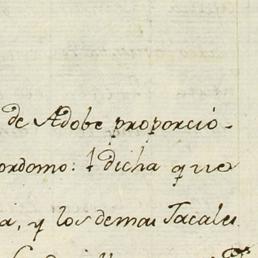 de Adobe proporcio-
ordomo: dicha que
a, y los demas Jacales